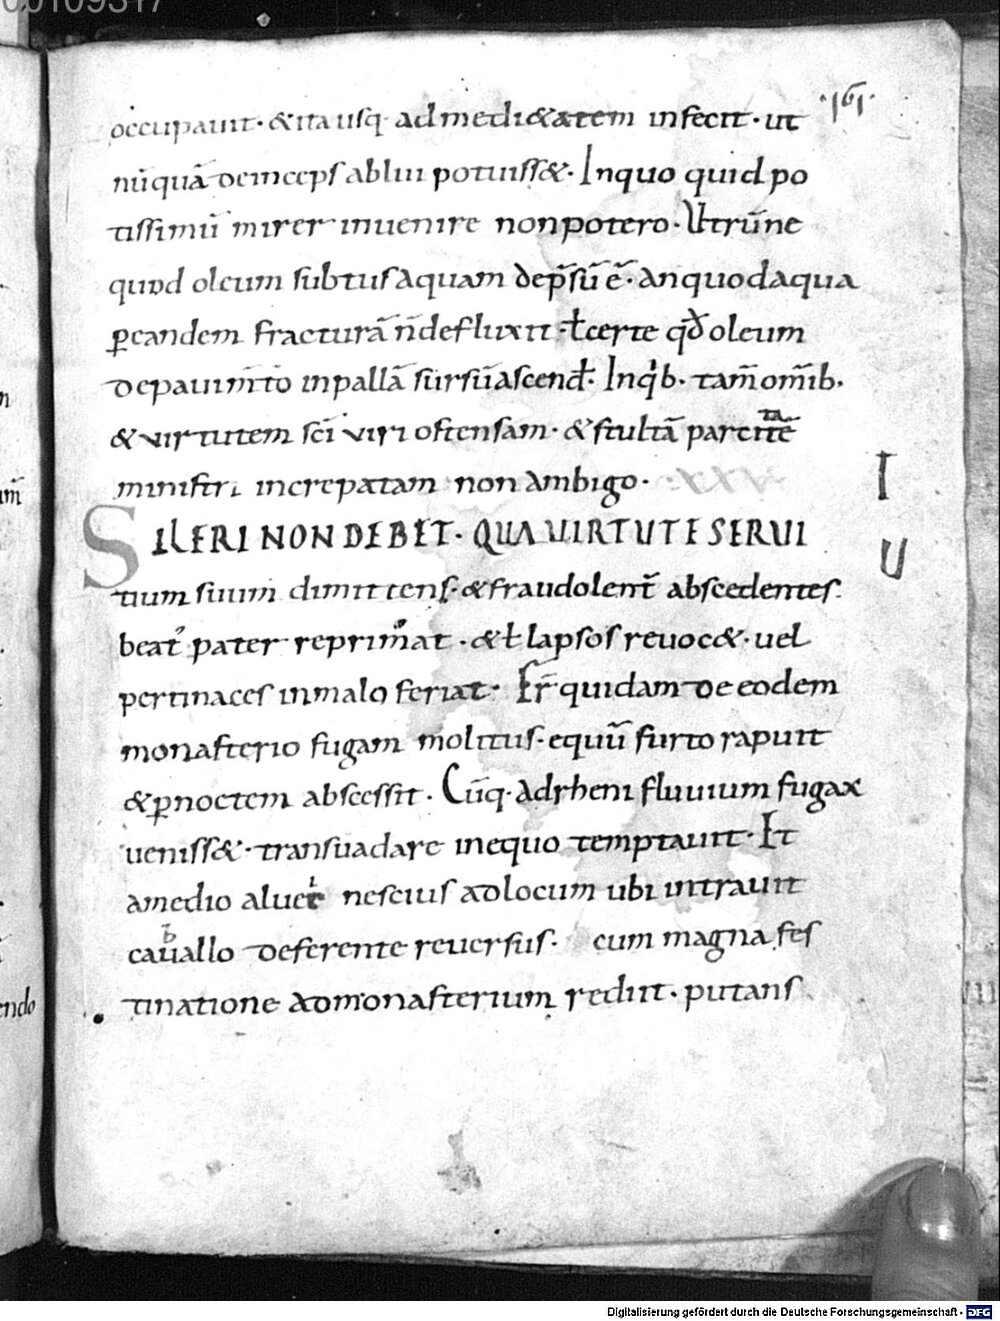 00109317
·161·
occupauit· &ita usq· ad medi&atem infecit· ut
nūquā deinceps ablui potuiss&· Inquo quid po
tissimū mirer inuenire non potero· Utrūne
quod oleum subtus aquam dep̄sū ē· an quod aqua
ꝑeandem fracturā n̄ defluxit· ł certe qđ oleum
de pauim̄to in pallā sursū ascend̄· In qͥb· tam̄ om̄ib·
& virtutem sc̄i viri ostensam· & stultā parcitatē
ministri increpatam non ambigo· XXV
SILERI NON DEBET· QUA UIRTUTE SERUI
tium suum dimittens· & fraudolent̄ abscedentes·
beat᾿ pater reprimat· & ł lapsos reuoc&· uel
pertinaces in malo feriat· Fr̄ quidam de eodem
monasterio fugam molitus· equū furto rapuit
& ꝑnoctem abscessit· Cūq· ad rheni fluuium fugax
ueniss&· transuadare in equo temptauit· Et
a medio aluei nescius ad locum ubi intrauit
cauallo deferente reuersus· cum magna fes
tinatione ad monasterium rediit· putans
I
U
endo
Digitalisierung gefördert durch die Deutsche Forschungsgemeinschaft - DFG